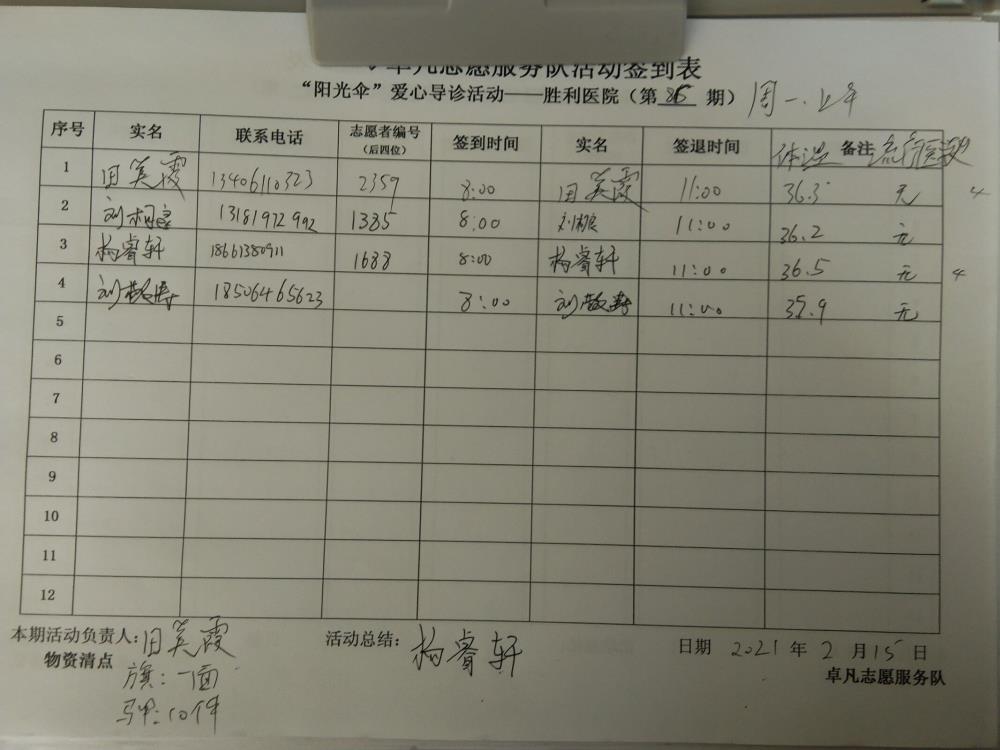 卓凡志愿服务队活动签到表
“阳光伞”爱心导诊活动——胜利医院(第 86 期) 周一.上午
序号 实名 联系电话 志愿者编号(后四位) 签到时间 实名 签退时间 体温 备注 流行医数
1 田英霞 13406110323 2359 8:00 田英霞 11:00 36.3 无 4
2 刘相良 13181972992 1385 8:00 11:00 36.2 无
3 杨睿轩 18661380911 1688 8:00 杨睿轩 11:00 36.5 无 4
4 18506465623 8:00 11:00 35.9 无
5
6
7
8
9
10
11
12
本期活动负责人: 田英霞 活动总结: 杨睿轩 日期 2021 年 2 月 15 日
物资清点 卓凡志愿服务队
旗:一面
马甲:10件